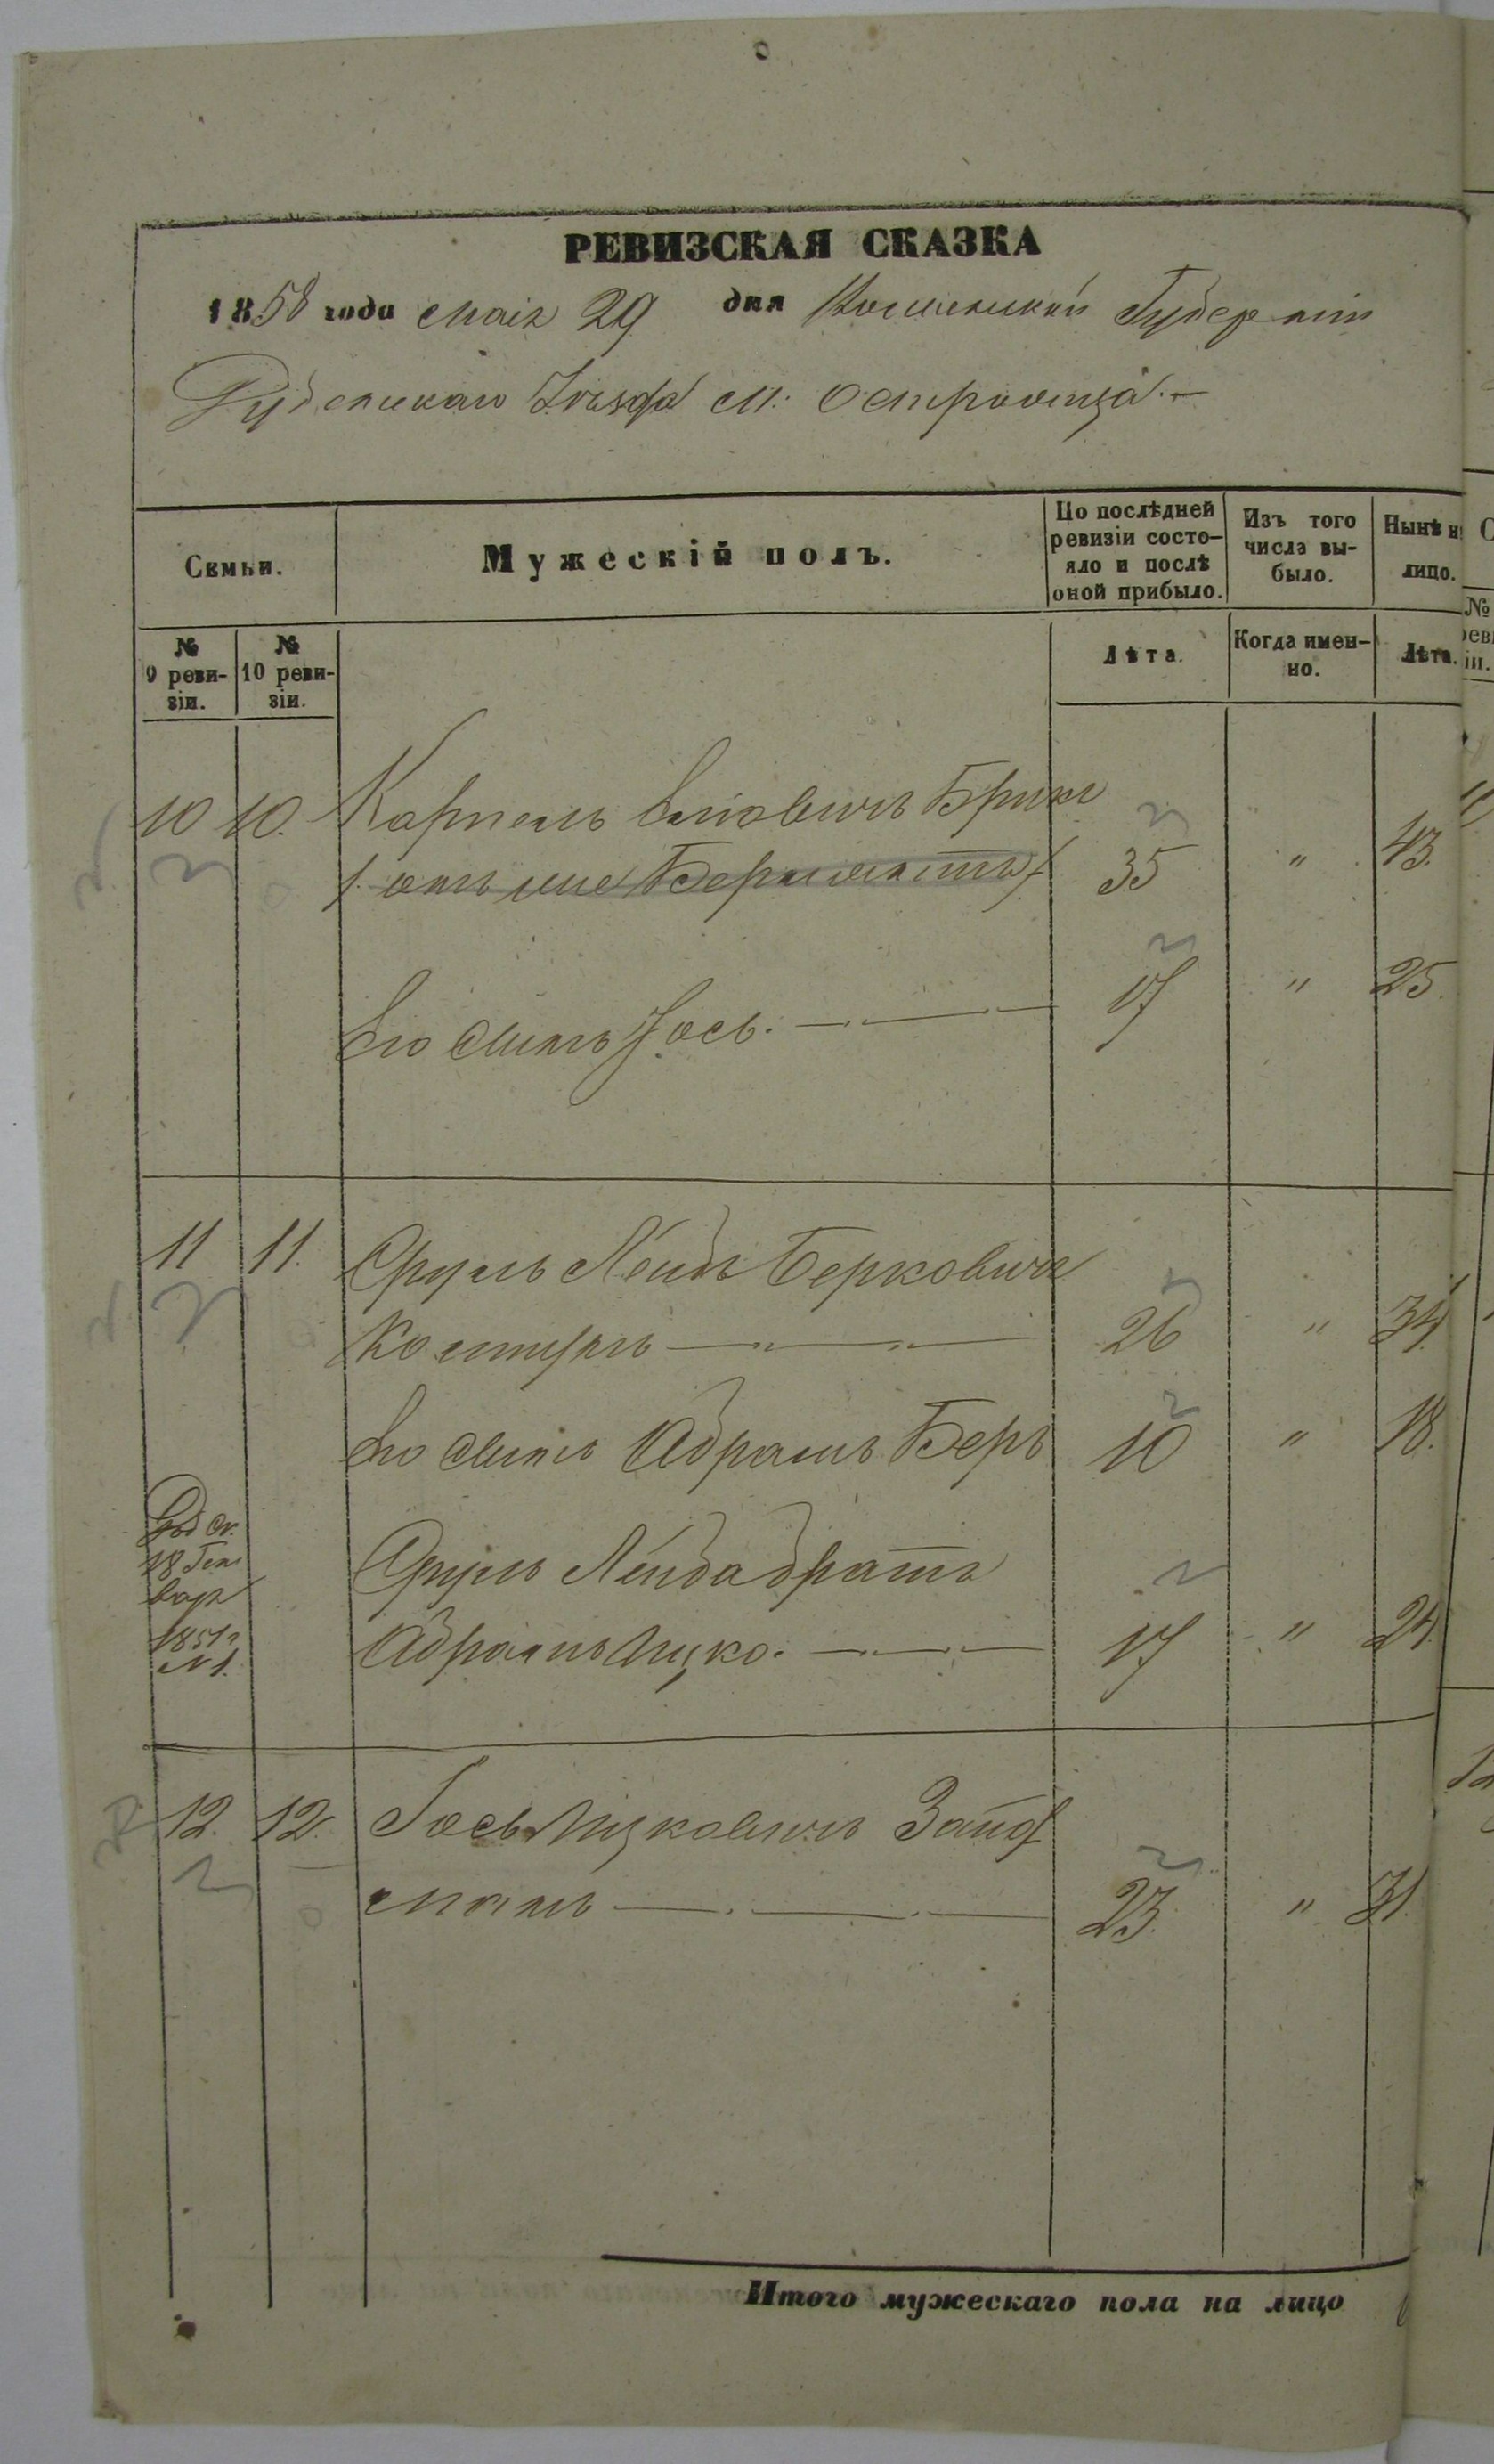 РЕВИЗСКАЯ СКАЗКА
1858 года Маія 29 дня Волынской Губерніи
Дубенскаго Уѣзда М: Остроженца
Семьи.
Мужескій полъ.
По послѣдней
ревизіи состо-
яло и послѣ
оной прибыло.
Изъ того
числа вы-
было.
Нынѣ н
лицо.
№
9 реви-
зіи.
№
10 реви-
зіи.
Лѣта.
Когда имен-
но.
Лѣта.
10 10. Карпель Еліовичъ Брикъ
онъ же 35 " 43.
Его сынъ Іось. 17 " 25.
11 11. Сруль Лейбъ Берковичъ
26 " 34.
Его сынъ Абрамъ Беръ 10 " 18.
18 Ген
варя
1851г
№ 1.
Сруль Лейба братъ
Абрамъ Ицко. 17 " 24.
12. 12. Іось Ицковичъ Зайд
манъ 23. " 31.
Итого мужескаго пола на лицо